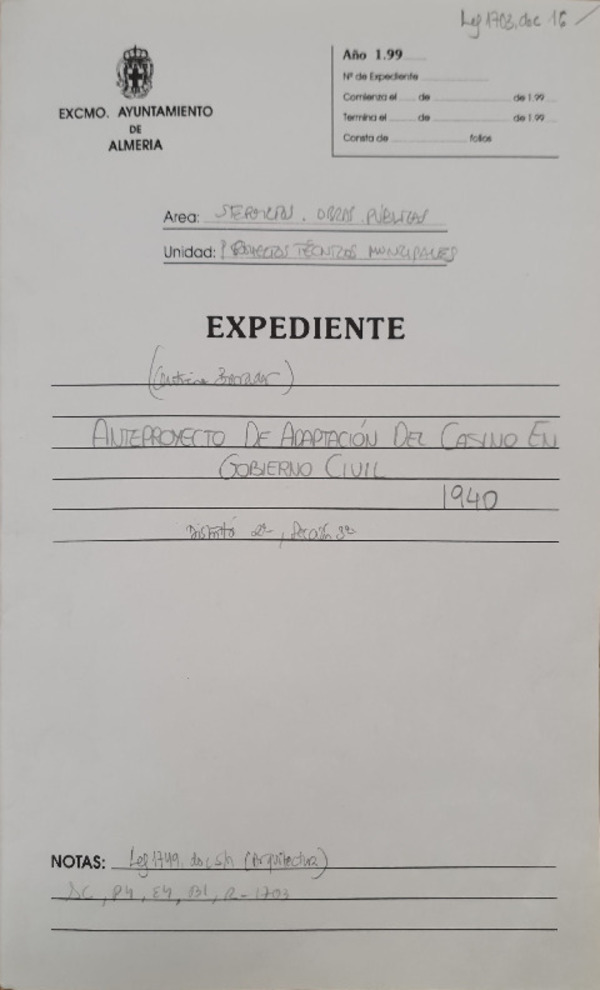 Leg 1703, doc 16
EXCMO. AYUNTAMIENTO
DE
ALMERIA
Año 1.99
Nº de Expediente
Comienza el de de 1.99
Termina el de de 1.99
Consta de folios
Area: SERVICIOS. OBRAS PÚBLICAS
Unidad: PROYECTOS TÉCNICOS MUNICIPALES
EXPEDIENTE
(Contiene Borrador)
ANTEPROYECTO DE ADAPTACIÓN DEL CASINO EN
GOBIERNO CIVIL
1940
Distrito 2º, Sección 3ª
NOTAS: Leg 1749, doc s/n (Arquitectura)
P4, E4, B1, R-1703